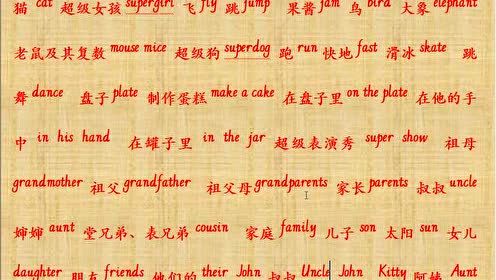 猫 cat 超级女孩 supergirl 飞 fly 跳 jump 果酱 jam 鸟 bird 大象 elephant
老鼠及其复数 mouse mice 超级狗 superdog 跑 run 快地 fast 滑冰 skate 跳
舞 dance 盘子 plate 制作蛋糕 make a cake 在盘子里 on the plate 在他的手
中 in his hand 在罐子里 in the jar 超级表演秀 super show 祖母
grandmother 祖父 grandfather 祖父母 grandparents 家长 parents 叔叔 uncle
婶婶 aunt 堂兄弟、表兄弟 cousin 家庭 family 儿子 son 太阳 sun 女儿
daughter 朋友 friends 他们的 their John 叔叔 Uncle John Kitty 阿姨 Aunt